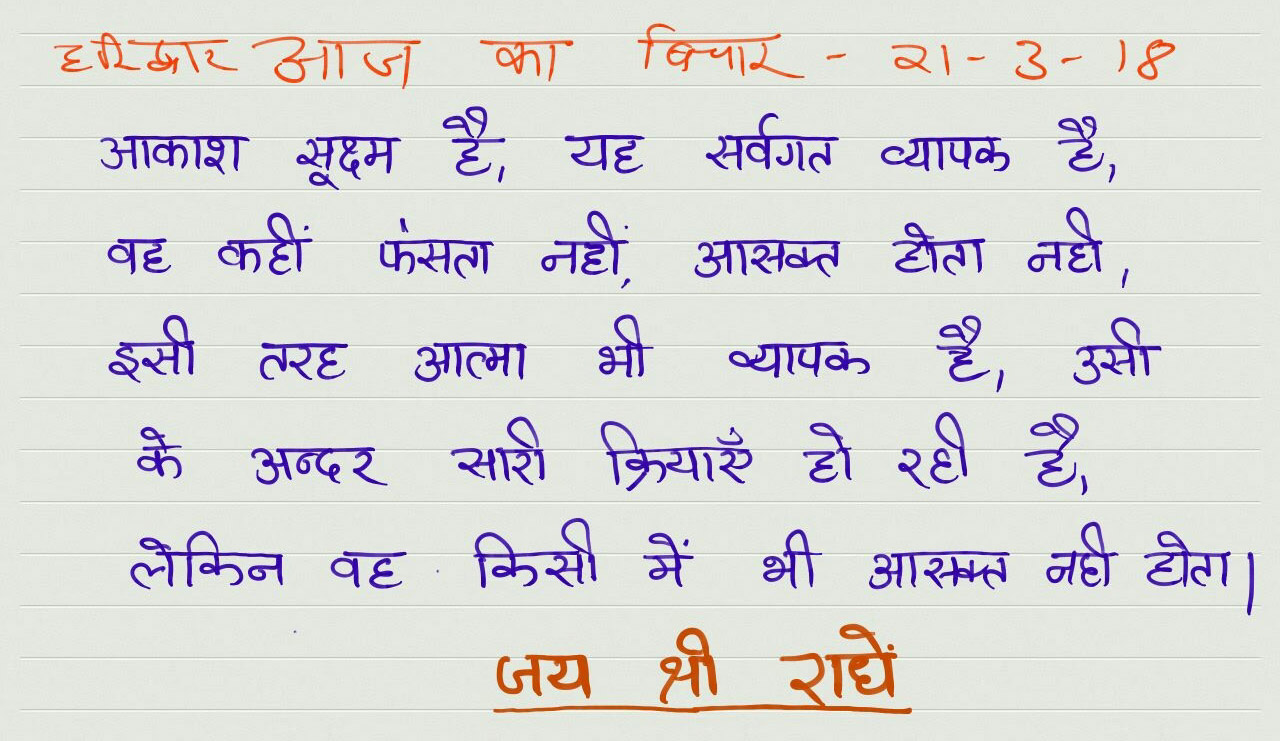 हरिद्वार आज का विचार - २1-3-18
आकाश सूक्ष्म है, यह सर्वगत व्यापक है,
वह कहीं फंसता नहीं, आसक्त होता नही,
इसी तरह आत्मा भी व्यापक है, उसी
के अन्दर सारी क्रियाएँ हो रही है,
लेकिन वह किसी में भी आसक्त नही होता।
जय श्री राधें